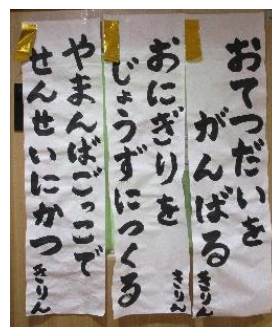 おてつだいを
がんばる
きりん
おにぎりを
じょうずにつくる
きりん
やまんばごっこで
せんせいにかつ
きりん